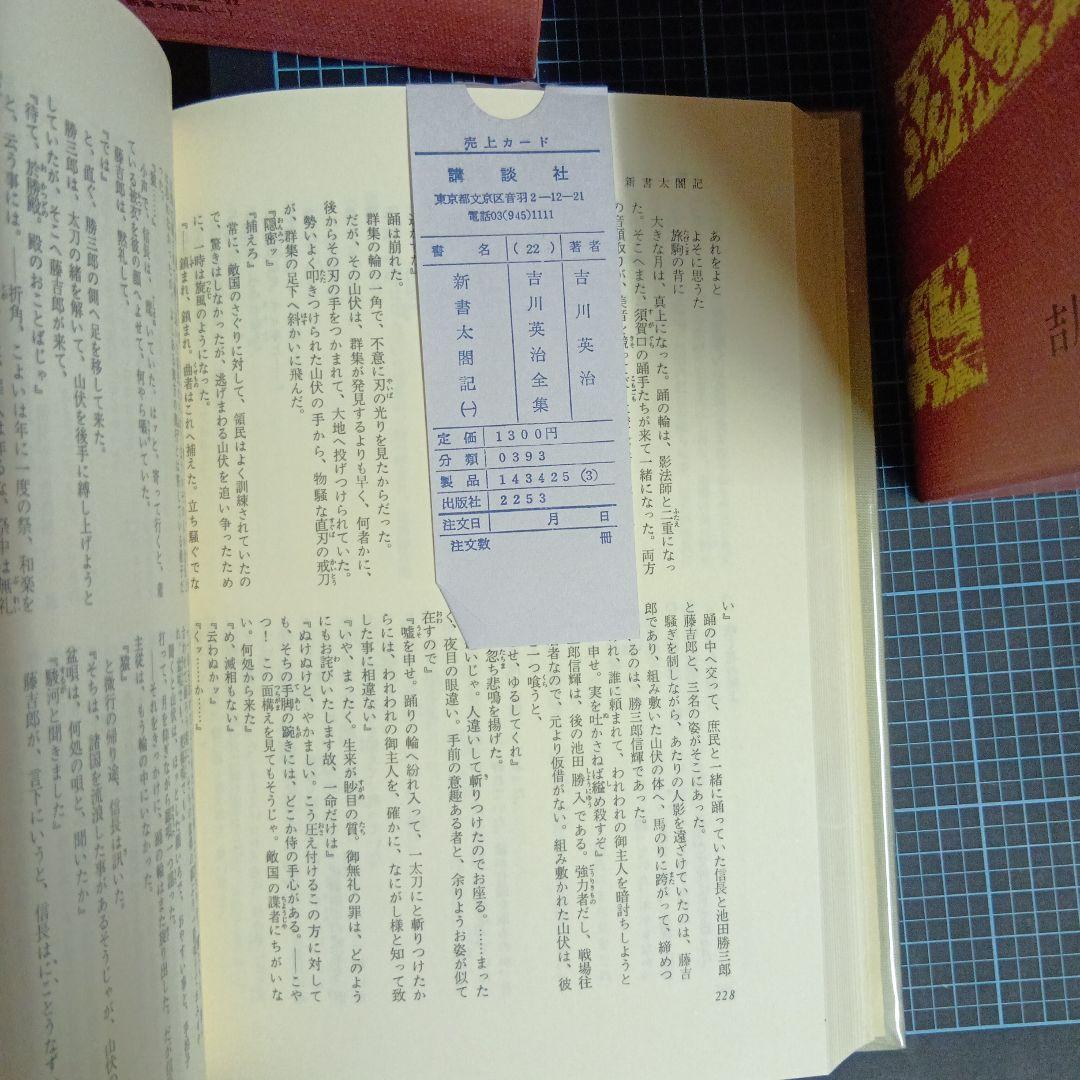 新書太閤記(一)
売上カード
講談社
東京都文京区音羽2―12―21
電話03(945)1111
書名
(22)
著者
新書太閤記(一)
吉川英治全集
吉川英治
定価 1300円
分類 0393
製品 143425 (3)
出版社 2253
注文日 月 日
注文数 冊
新書太閤記
あれをよと
よそに思うた
旅駒の背に
大きな月は、真上になった。踊の輪は、影法師と二重になっ
た。そこへまた、須賀口の踊手たちが来て一緒になった。両方
の音頭取りが、美音を
踊は崩れた。
群集の輪の一角で、不意に刃の光りを見たからだった。
だが、その山伏は、群集が発見するよりも早く、何者かに、
後からその刃の手をつかまれて、大地へ投げつけられていた。
勢いよく叩きつけられた山伏の手から、物騒な直刃の戒刀
が、群集の足下へ斜かいに飛んだ。
『隠密ッ』
『捕えろ』
常に、敵国のさぐりに対して、領民はよく訓練されていたの
で、驚きはしなかったが、逃げまわる山伏を追い争ったため
に、一時は旋風のようになった。
『――鎮まれ、鎮まれ。曲者はこれへ捕えた。立ち騒ぐでな
い』
踊の中へ交って、庶民と一緒に踊っていた信長と池田勝三郎
と藤吉郎と、三名の姿がそこにあった。
騒ぎを制しながら、あたりの人影を遠ざけていたのは、藤吉
郎であり、組み敷いた山伏の体へ、馬のりに跨がって、締めつ
るのは、勝三郎信輝であった。
れ、誰に頼まれて、われわれの御主人を暗討ちしようと
申せ。実を吐かさねば縊め殺すぞ』
郎信輝は、後の池田勝入である。強力者だし、戦場往
者なので、元より仮借がない。組み敷かれた山伏は、彼
二つ喰うと、
忽ち悲鳴を揚げた。
せ、ゆるしてくれ』
いじゃ。人違いして斬りつけたのでお座る。……まった
く、夜目の眼違い。手前の意趣ある者と、余りようお姿が似て
在すので』
『嘘を申せ。踊りの輪へ紛れ入って、一太刀にと斬りつけたか
らには、われわれの御主人を、確かに、なにがし様と知って致
した事に相違ない』
『いや、まったく。生来が眇目の質。御無礼の罪は、どのよう
にもお詫びいたします故、一命だけは』
『ぬけぬけと、やかましい。こう圧え付けるこの方に対して
も、そちの手脚の踠きには、どこか侍の手心がある。――こや
つ!この面構えを見てもそうじゃ。敵国の諜者にちがいな
い。何処から来た』
『め、滅相もない』
『云わぬかッ』
『くッ……か……』
228
と、云う事には。
『待て、於勝殿。殿のおことばじゃ』
していたが、そこへ藤吉郎が来て、
勝三郎は、太刀の緒を解いて、山伏を後手に縛し上げようと
と、直ぐ、勝三郎の側へ足を移して来た。
『では』
藤吉郎は、黙礼して、
主従は、もう輪の中にいなかった。
『猿』
と微行の帰り途、信長は訊いた。
『そちは、諸国を流浪した事があるそうじゃが、山伏の
盆唄は、何処の唄と、聞いたか』
『駿河と聞きました』
藤吉郎が、言下にいうと、信長はにことうなず